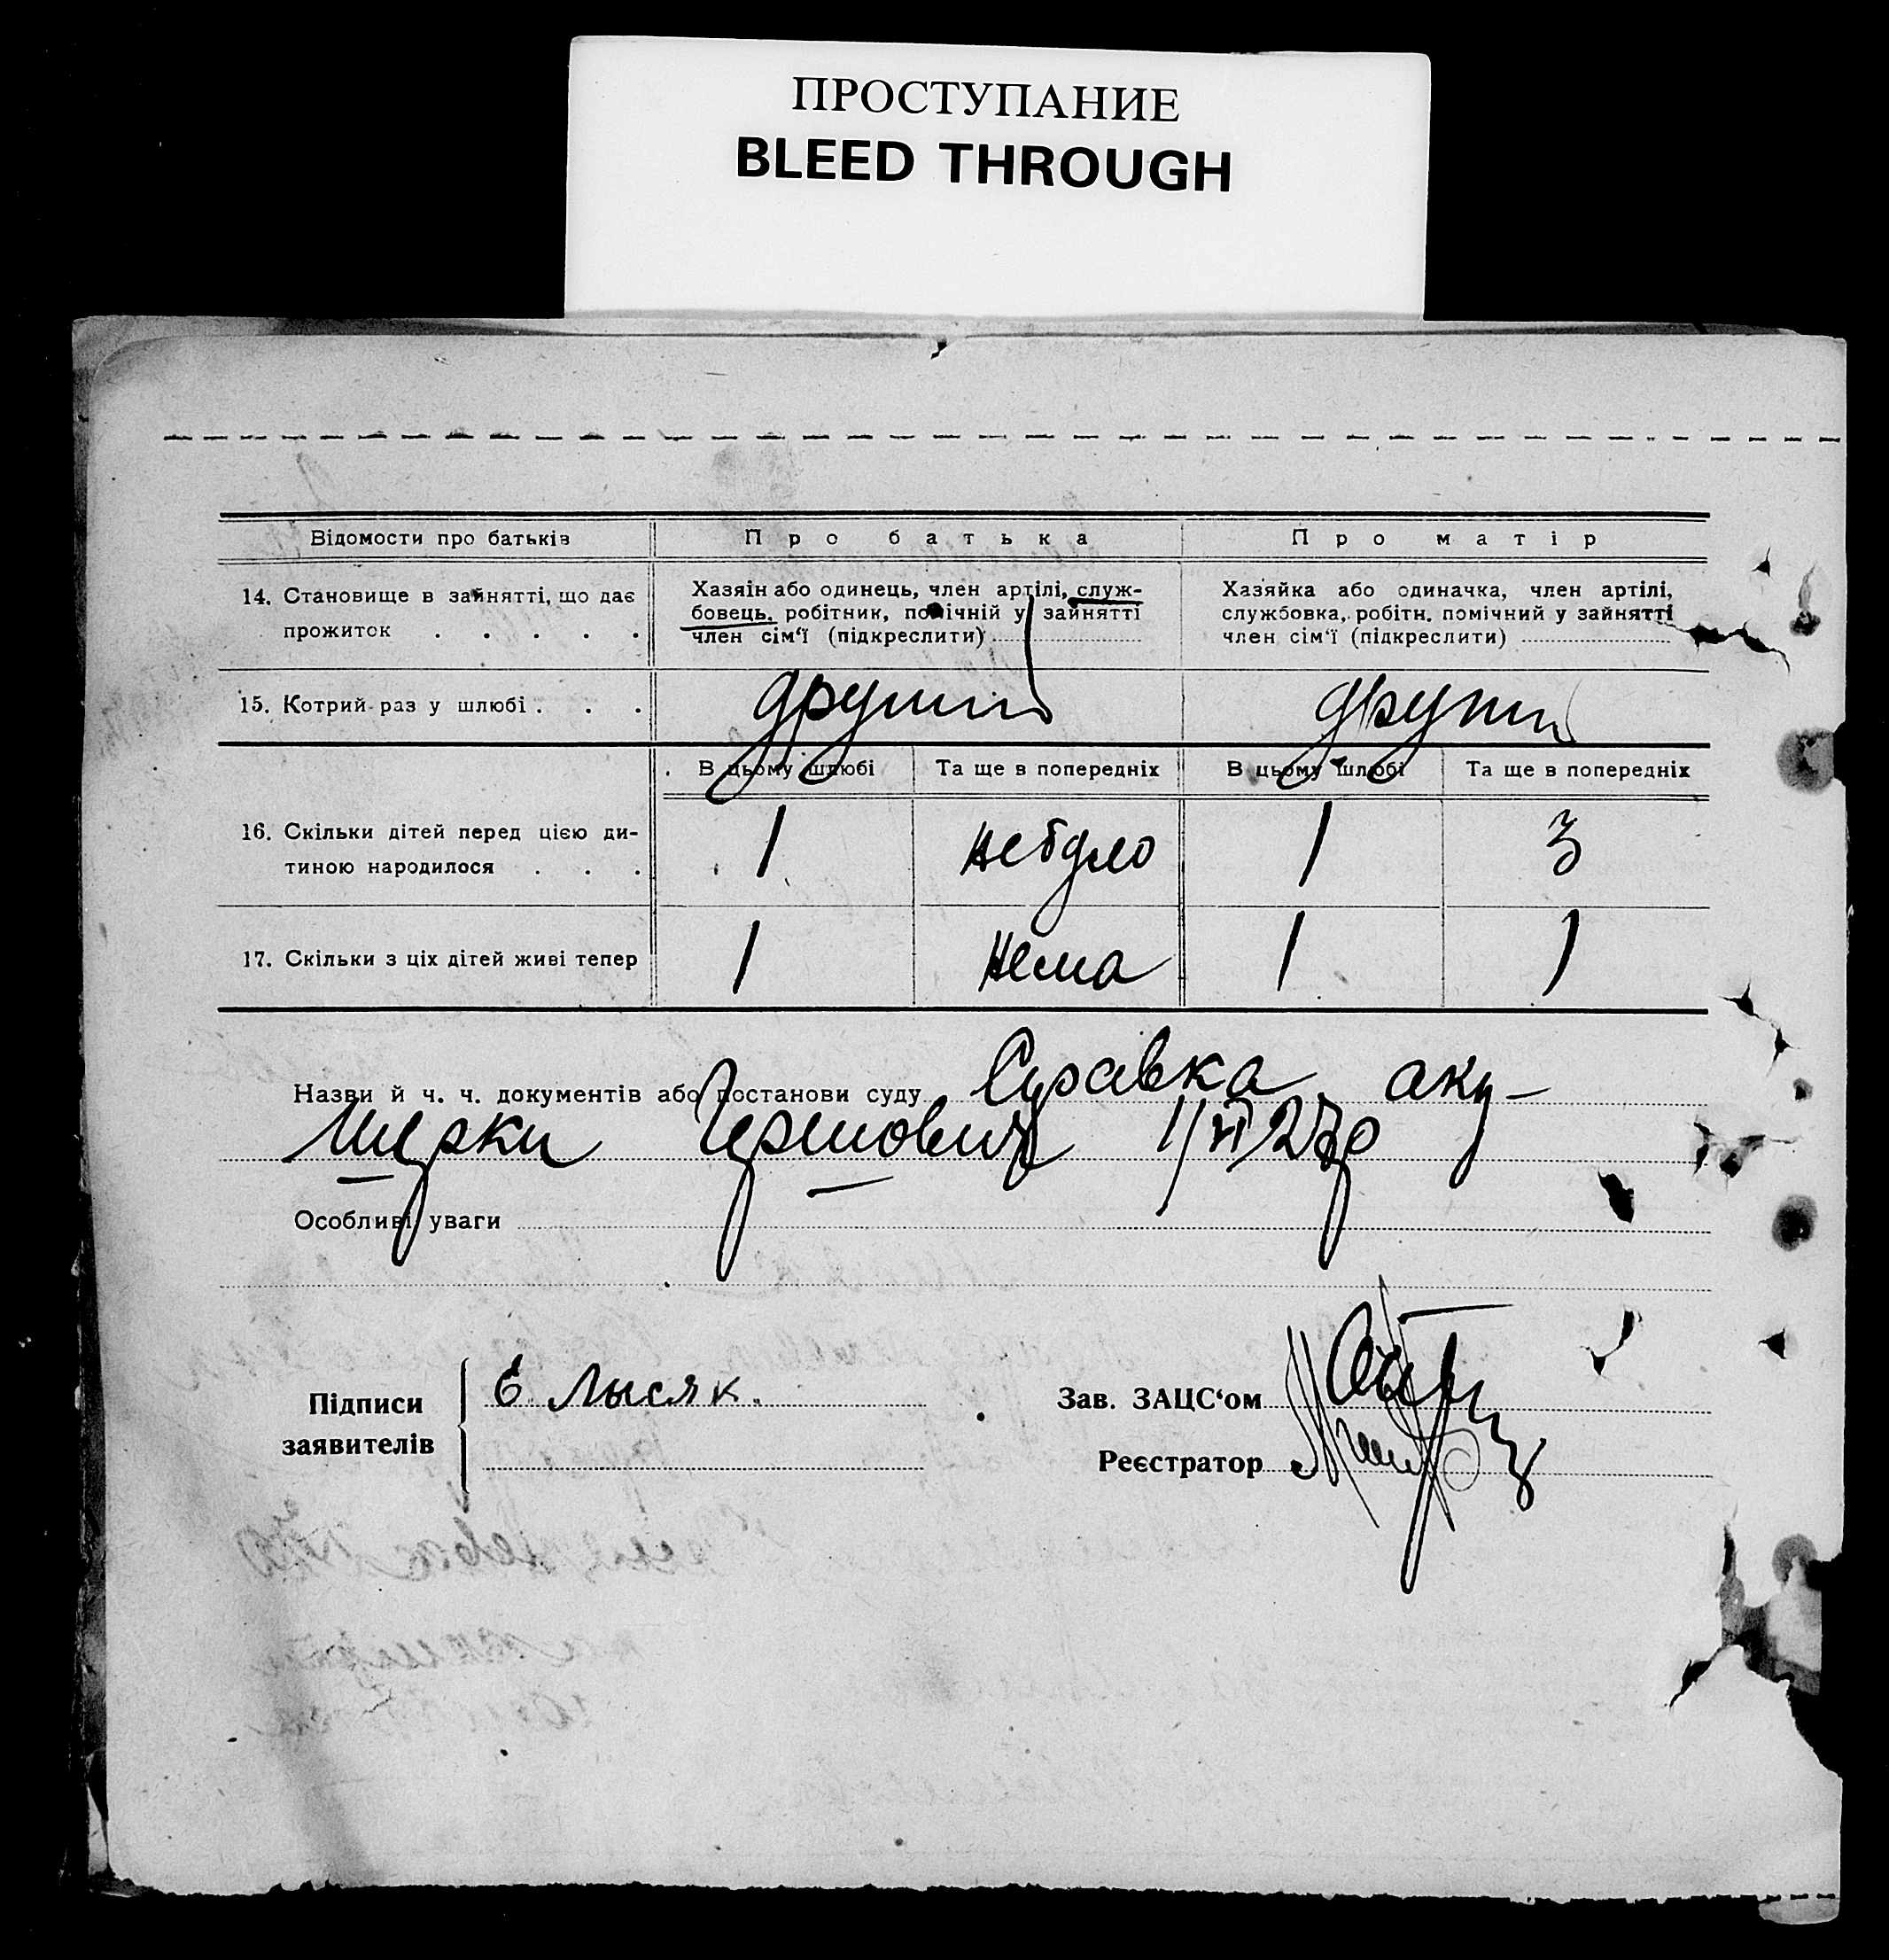 ПРОСТУПАНИЕ
BLEED THROUGH
Відомости про батьків
Про батька
Про матір
14. Становище в зайнятті, що дає
прожиток . . . . .
Хазяін або одинець, член артілі, служ-
бовець, робітник, помічній у зайнятті
член сім‘ї (підкреслити)
Хазяйка або одиначка, член артілі,
службовка, робітн. помічний у зайнятті
член сім‘ї (підкреслити)
15. Котрий раз у шлюбі . . .
другий
другий
В цьому шлюбі
Та ще в попередніх
В цьому шлюбі
Та ще в попередніх
16. Скільки дітей перед цією ди-
тиною народилося . . .
1
небуло
1
3
17. Скільки з ціх дітей живі тепер
1
нема
1
1
Назви й ч. ч. документів або постанови суду Справка аку-
шерки
Особливі уваги
Підписи
заявителів
Е. Лысяк.
Зав. ЗАЦС‘ом
Реєстратор